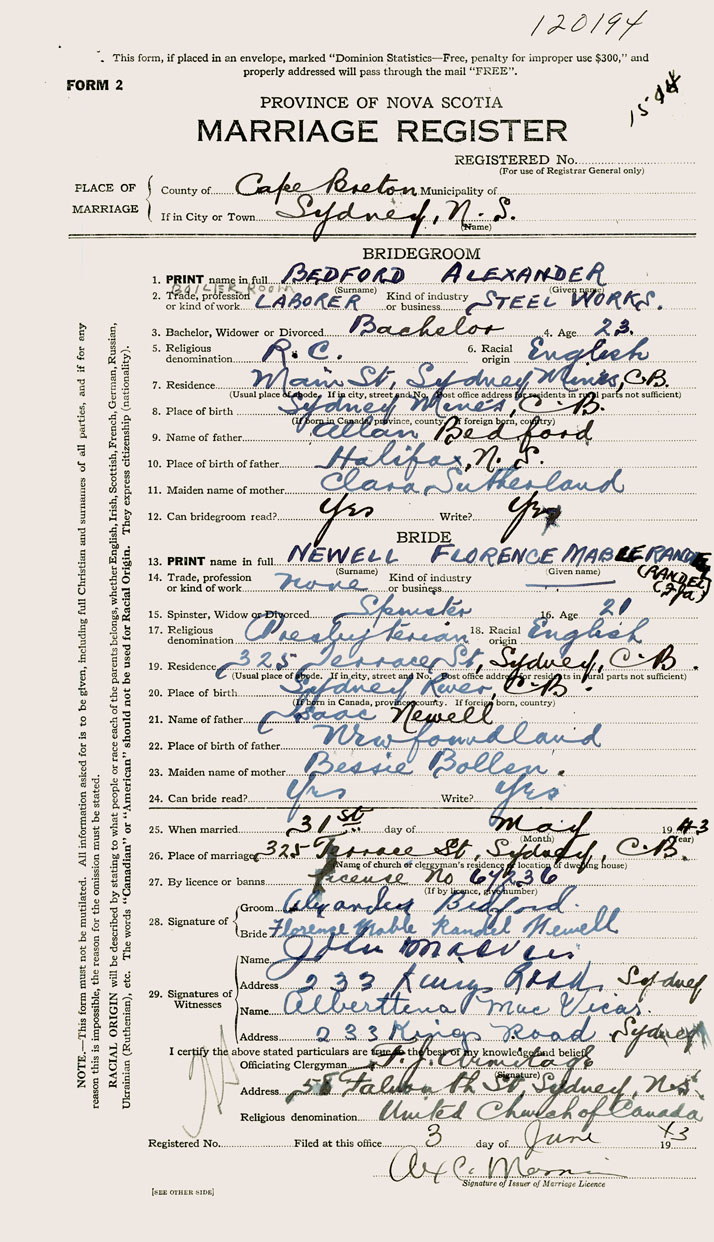 120194
This form, if placed in an envelope, marked "Dominion Statistics—Free, penalty for improper use $300," and
properly addressed will pass through the mail "FREE".
FORM 2
PROVINCE OF NOVA SCOTIA
MARRIAGE REGISTER
REGISTERED No.
(For use of Registrar General only)
PLACE OF MARRIAGE
County of Cape Breton Municipality of
If in City or Town Sydney, N. S.
(Name)
BRIDEGROOM
1. PRINT name in full BEDFORD ALEXANDER
(Surname) (Given name)
BOILER ROOM
2. Trade, profession or kind of work LABORER Kind of industry or business STEEL WORKS.
3. Bachelor, Widower or Divorced Bachelor 4. Age 23.
5. Religious denomination R. C. 6. Racial origin English
7. Residence Main St, Sydney Mines, C.B.
(Usual place of abode. If in city, street and No. Post office address for residents in rural parts not sufficient)
8. Place of birth Sydney Mines, C. B.
(If born in Canada, province, county. If foreign born, country)
9. Name of father Allan Bedford
10. Place of birth of father Halifax, N. S.
11. Maiden name of mother Clara Sutherland
12. Can bridegroom read? Yes Write? Yes
BRIDE
13. PRINT name in full NEWELL FLORENCE MABLE RANDE
(Surname) (Given name)
(RANDEL)
14. Trade, profession or kind of work none Kind of industry or business
15. Spinster, Widow or Divorced Spinster 16. Age 21
17. Religious denomination Presbyterian 18. Racial origin English
19. Residence 325 Terrace St, Sydney, C.B.
(Usual place of abode. If in city, street and No. Post office address for residents in rural parts not sufficient)
20. Place of birth Sydney River, C.B.
(If born in Canada, province, county. If foreign born, country)
21. Name of father Isaac Newell
22. Place of birth of father Newfoundland
23. Maiden name of mother Bessie Bollen.
24. Can bride read? Yes Write? Yes
25. When married 31st day of May 1943
(Month) (Year)
26. Place of marriage 325 Terrace St, Sydney, C.B.
(Name of church or clergyman's residence or location of dwelling house)
27. By licence or banns License No 64236
(If by licence, give number)
28. Signature of
Groom Alexander Bedford.
Bride Florence Mable Randel Newell
29. Signatures of Witnesses
Name John
Address 233 Kings Road, Sydney
Name Alberttena Mac Vicar.
Address 233 Kings Road Sydney
I certify the above stated particulars are true to the best of my knowledge and belief.
Officiating Clergyman F. J. Armitage
(Signature)
Address 58 Falmouth St, Sydney, N.S.
Religious denomination United Church of Canada
Registered No. Filed at this office 3 day of June 1943
Alex C.
Signature of Issuer of Marriage Licence
[SEE OTHER SIDE]
NOTE.—This form must not be mutilated. All information asked for is to be given, including full Christian and surnames of all parties, and if for any
reason this is impossible, the reason for the omission must be stated.
RACIAL ORIGIN will be described by stating to what people or race each of the parents belongs, whether English, Irish, Scottish, French, German, Russian,
Ukrainian (Ruthenian), etc. The words "Canadian" or "American" should not be used for Racial Origin. They express citizenship (nationality).